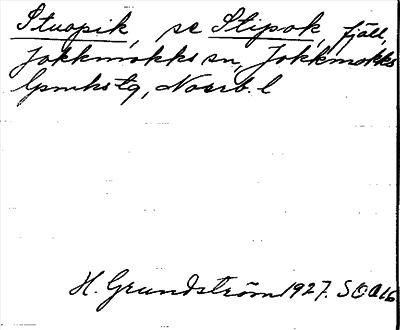 Stuopik, se Stipok, fjäll,
Jokkmokks sn, Jokkmokks
lpmkstg, Norrb. l
H. Grundström 1927. SOA16